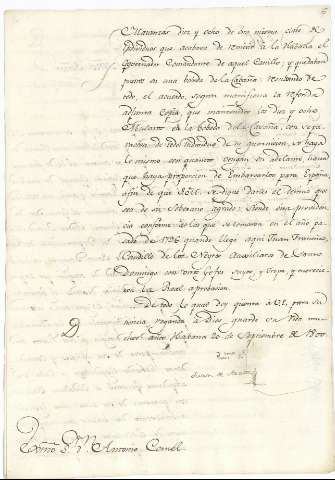 Matanzas diez y ocho de esa misma clase de
individuos que acababa de remitir a la Habana el
Governador Comandante de aquel Castillo; y quedaban
presos en una bobeda de la Cabaña: resultando de
todo, el acuerdo, segun manifiesta la referida
adjunta Copia, que mantenidos los diez y ocho
en la bobeda de la Cavaña, con sepa
de todo individuo de su guarnicion, se haga
lo mismo con quantos vengan en adelante, hasta
que haya proporcion de Embarcarlos para España,
afin de que S.M. se digne darles el destino que
sea de su Soberano agrado; siendo esta providen
cia conforme a la que se tomara en el año pa
sado de 1796 quando llegó aqui Juan Francisco,
Caudillo de los Negros Auxiliares de Santo
Domingo con otros Gefes suyos, y Tropa, y merecie
ron la Real aprobacion.
De todo lo qual doy cuenta a V.E. para su
noticia, rogando a Dios, guarde su vida mu
chos años. Havana 20 de Septiembre de 1800.
Exmo Sr. Dn. Antonio Cornel.